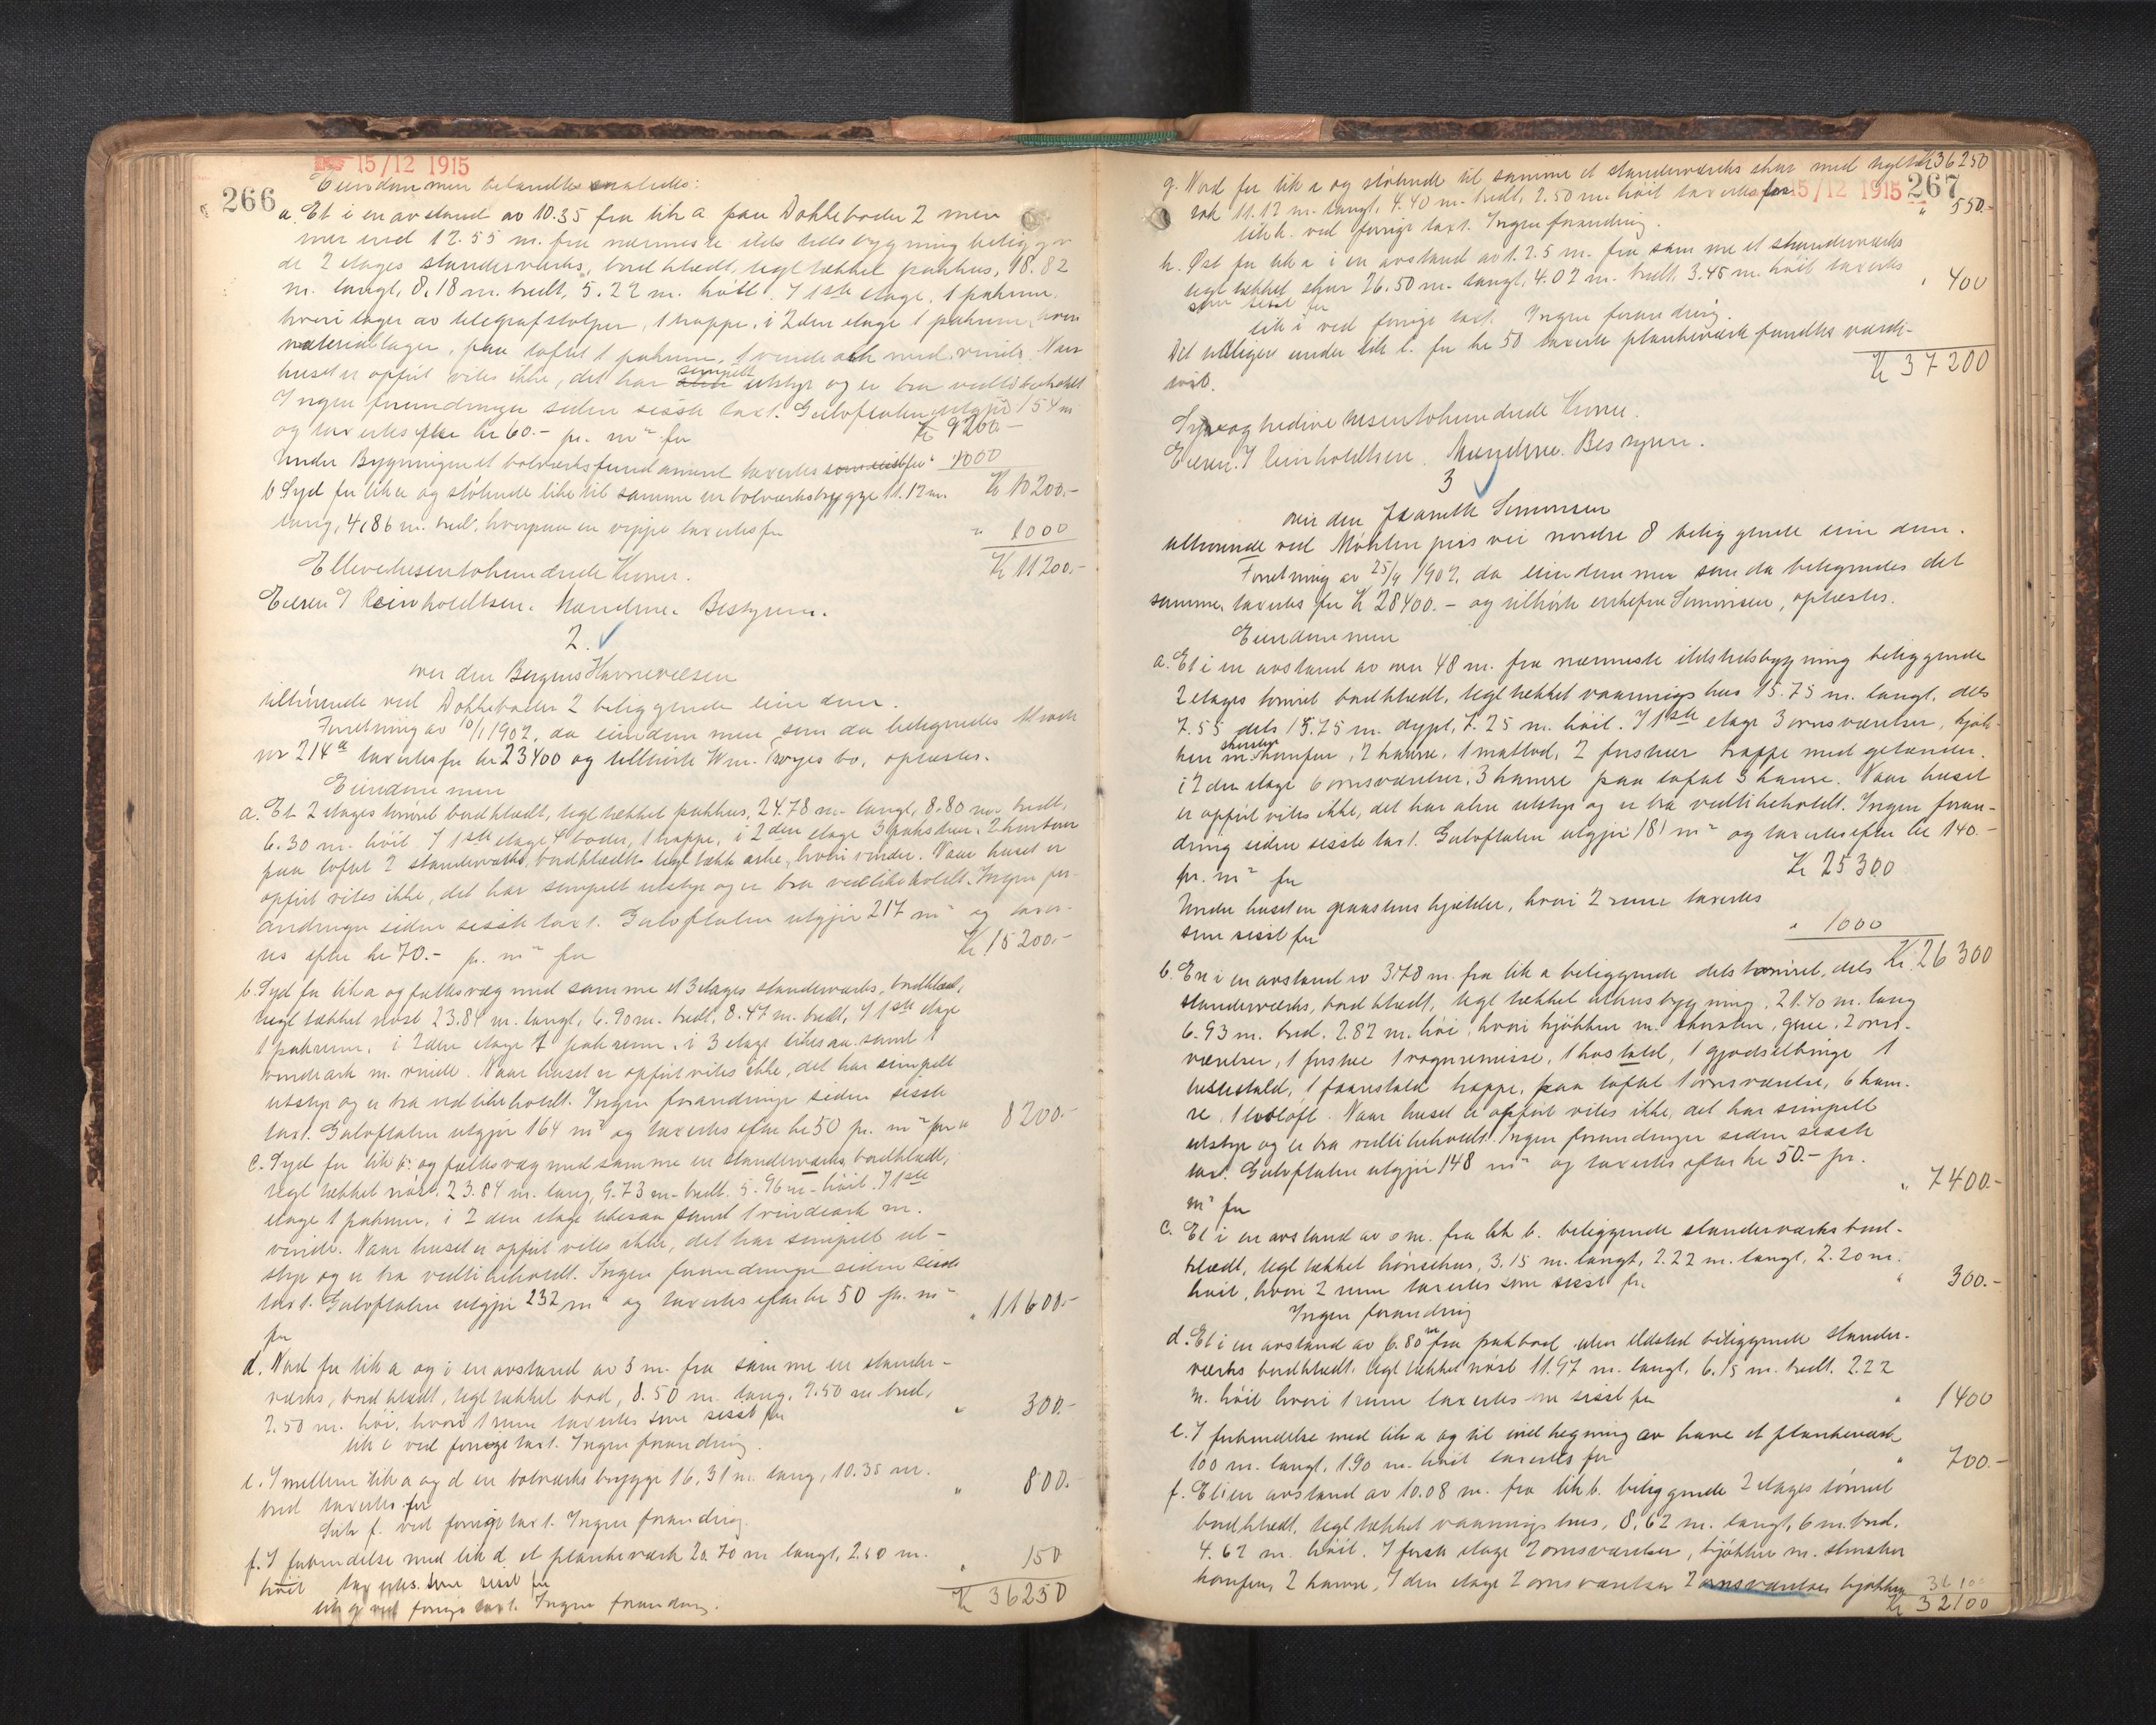 15/12 1915
266 Eiendommen behandles saaledes:
a. Et i en avstand av 10.35 fra litr a paa Dokkeboder 2 men
mer end 12.55 m. fra nærmeste ildstedsbygning beliggen
de 2 etages standerverks, bordklædt, tegltækket pakhus, 18.82
m. langt, 8.18 m. bredt, 5.22 m. høit. I 1ste etage, 1 pakrum,
hvori lager av telegrafstolper, 1 trappe, i 2den etage 1 pakrum, hvori
materiallager, paa loftet 1 pakrum, 1 vindeark med vinde. Naar
huset er opført vites ikke, det har simpelt utstyr og er bra vedlikeholdt
Ingen forandringer siden sisste taxt. Gulvflaten utgjør 154 m
og taxertes efter kr 60.- pr. m² for Kr 9200.-
Under Bygningen et bolverksfundament taxertes som sisst for " 1000
Kr 10200.-
b Syd for litr a og støtende like til samme en bolverksbrygge 11.12 m.
lang, 4,86 m. bred, hvorpaa en vippe taxertes for " 1000
Kr 11200.-
Ellevetusentohundrede Kroner.
Eieren I Reinholdtsen. Mændene. Bestyren.
2.
over den Bergens Havnevæsen
tilhørende ved Dokkeboder 2 beliggende eiendom.
Forretning av 10/1 1902, da eiendommen som da betegnedes
nr 214a taxertes for kr 23400 og tilhørte Wm. Troyes bo, oplæstes.
Eiendommen
a. Et 2 etages tømret bordklædt, tegltækket pakhus, 24.78 m. langt, 8.80 m. bredt,
6.30 m. høit. I 1ste etage 4 boder, 1 trappe, i 2den etage 3 pakrum, 2 kontorer
paa loftet 2 standerverks, bordklædte tegltækte arke, hvori vinder. Naar huset er
opført vites ikke, det har simpelt utstyr og er bra vedlikeholdt. Ingen for-
andringer siden sisste taxt. Gulvflaten utgjør 217 m² og taxer-
tes efter kr 70.- pr. m² for Kr 15200.-
b. Syd for litr a og fællesvæg med samme et 3 etages standerverks, bordklædt,
tegltækket nøst 23.84 m. langt, 6.90 m. bredt, 8.47 m. bredt, I 1ste etage
1 pakrum, i 2den etage 1 pakrum, i 3 etage likesaa samt 1
vindeark m. vinde. Naar huset er opført vites ikke, det har simpelt
utstyr og er bra vedlikeholdt. Ingen forandringer siden sisste
taxt. Gulvflaten utgjør 164 m² og taxertes efter kr 50 pr. m² for " 8200.-
c. Syd for litr b. og fællesvæg med samme en standerverks, bordklædt,
tegltækket nøst. 23.84 m. lang, 9.73 m. bredt. 5.96 m. høit. I 1ste
etage 1 pakrum, i 2 den etage likesaa samt 1 vindeark m.
vinde. Naar huset er opført vites ikke, det har simpelt ut-
styr og er bra vedlikeholdt. Ingen forandringer siden sisste
taxt. Gulvflaten utgjør 232 m² og taxertes efter kr 50 pr. m²
for " 11600.-
d. Nord for litr a og i en avstand av 3 m. fra samme en stander-
verks, bordklædt, tegltækket bod, 8.50 m. lang. 2.50 m bred,
2.50 m. høi, hvori 1 rum taxertes som sisst for " 300.-
litr e ved forrige taxt. Ingen forandring.
e. I mellem litr a og d en bolverksbrygge 16.31 m. lang, 10.35 m.
bred taxertes for " 800.-
Litr f. ved forrige taxt. Ingen forandring.
f. I forbindelse med litr d et plankeverk 20.70 m langt, 2.50 m.
høit taxertes som sisst for " 150
litr g ved forrige taxt. Ingen forandring. Kr 36250
Kr 36250
g. Nord for litr e og støtende til samme et standerverks skur med tegl
15/12 1915 267
tak 11.12 m. langt, 4.40 m. bredt, 2.50 m. høit taxertes for " 550.-
litr h. ved forrige taxt. Ingen forandring.
h. Øst for litr a i en avstand av 12.5 m. fra samme et standerverks
tegltækket skur 26.50 m. langt, 4.02 m. bredt, 3.45 m. høit taxertes
som sisst for " 400
litr i ved forrige taxt. Ingen forandring.
Det tidligere under litr l. for kr 50 taxerte plankeverk fandtes værdi-
løst. Kr 37200
Syvogtredivetusentohundrede Kroner.
Eieren. I Reinholdtsen. Mændene. Bestyren.
3
over den Jeanette Simonsen
tilhørende ved Møhlenpris vei nordre 8 beliggende eiendom.
Forretning av 25/4 1902, da eiendommen som da betegnedes det
samme, taxertes for Kr 28400.- og tilhørte enkefru Simonsen, oplæstes.
Eiendommen
a. Et i en avstand av over 48 m. fra nærmeste ildstedsbygning beliggende
2 etages tømret bordklædt, tegltækket vaaningshus 15.75 m. langt, dels
7.55 dels 15.75 m. dypt, 7.25 m. høit. I 1ste etage 3 ovnsværelser, kjøk-
ken m. skorsten komfur, 2 kamre, 1 matbod, 2 forstuer trappe med gelænder.
i 2den etage 6 ovnsværelser, 3 kamre paa loftet 3 kamre. Naar huset
er opført vites ikke, det har alm utstyr og er bra vedlikeholdt. Ingen foran-
dring siden sisste taxt. Gulvflaten utgjør 181 m² og taxertes efter kr 140.-
pr. m² for Kr 25300
Under huset en graastens kjelder, hvori 2 rum taxertes
som sisst for " 1000
Kr. 26300
b. En i en avstand av 3.78 m. fra litr a beliggende dels tømret, dels
standerverks, bordklædt, tegltækket uthusbygning, 21.40 m. lang
6.93 m. bred. 2.82 m. høi, hvori kjøkken m. skorsten, grue, 2 ovns-
værelser, 1 forstue 1 vognremisse, 1 kostald, 1 gjødselbinge 1
hestestald, 1 faarestald trappe, paa loftet 1 ovnsværelse, 6 kam-
re, 1 høloft. Naar huset er opført vites ikke, det har simpelt
utstyr og er bra vedlikeholdt. Ingen forandringer siden sisste
taxt. Gulvflaten utgjør 148 m² og taxertes efter kr 50.- pr.
m² for " 7400.-
c. Et i en avstand av 0 m. fra litr b. beliggende standerverks bord-
klædt, tegltækket hønsehus, 3.15 m. langt, 2.22 m. langt, 2.20 m.
høit, hvori 2 rum taxertes som sisst for " 300.-
Ingen forandring
d. Et i en avstand av 6.80 m fra pakbod uten ildsted beliggende stander-
verks bordklædt, tegltækket nøst 11.97 m. langt, 6.15 m. bredt. 2.22
m. høit hvori 1 rum taxertes som sisst for " 1400
e. I forbindelse med litr a og til indhegning av have et plankeverk
100 m. langt, 1.90 m. høit taxertes for " 700.-
f. Et i en avstand av 10.08 m. fra litr b. beliggende 2 etages tømret
bordklædt, tegltækket vaaningshus, 8.62 m. langt, 6 m. bred,
4.62 m. høit. I første etage 2 ovnsværelser, kjøkken m. skorsten
komfur, 2 kamre, I den etage 2 ovnsværelser 2 ovnsværelser kjøkken 36100
Kr 32100